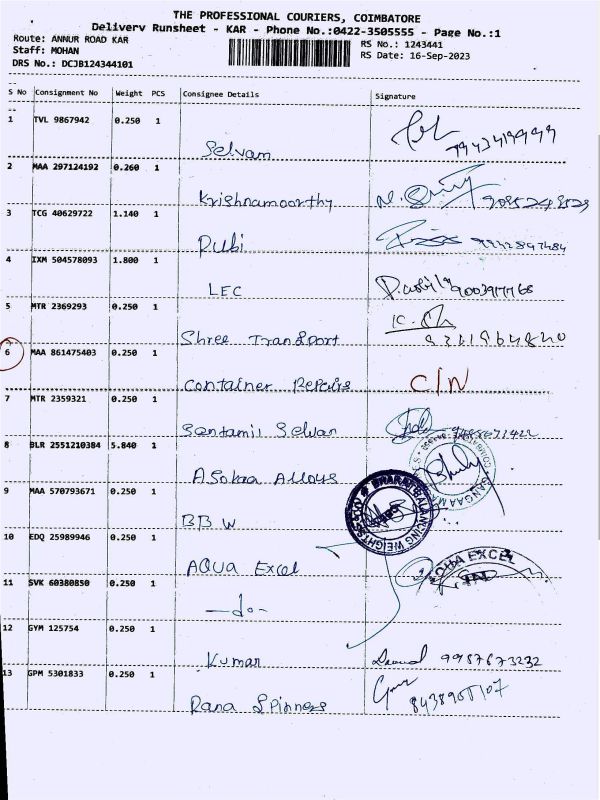 THE PROFESSIONAL COURIERS, COIMBATORE
Delivery Runsheet - KAR - Phone No.:0422-3505555 - Page No.:1
Route: ANNUR ROAD KAR
RS No.: 1243441
Staff: MOHAN
RS Date: 16-Sep-2023
DRS No.: DCJB124344101
S No Consignment No Weight PCS Consignee Details Signature
1 TVL 9867942 0.250 1
Selvam
2 MAA 297124192 0.260 1
Krishnamoorthy
3 TCG 40629722 1.140 1
Rubi
4 IXM 504578093 1.800 1
LEC
5 MTR 2369293 0.250 1
Shree Transport
6 MAA 861475403 0.250 1
Container Repairs C/N
7 MTR 2359321 0.250 1
Sentamil Selvan
8 BLR 2551210384 5.840 1
Asokaa Alloys
9 MAA 570793671 0.250 1
BBW
BHARAT BALANCING WEIGHTS
10 EDQ 25989946 0.250 1
AQUA Excel
11 SVK 60380850 0.250 1
-do-
12 GYM 125754 0.250 1
Kumar 9987673232
13 GPM 5301833 0.250 1
Rana Spinners